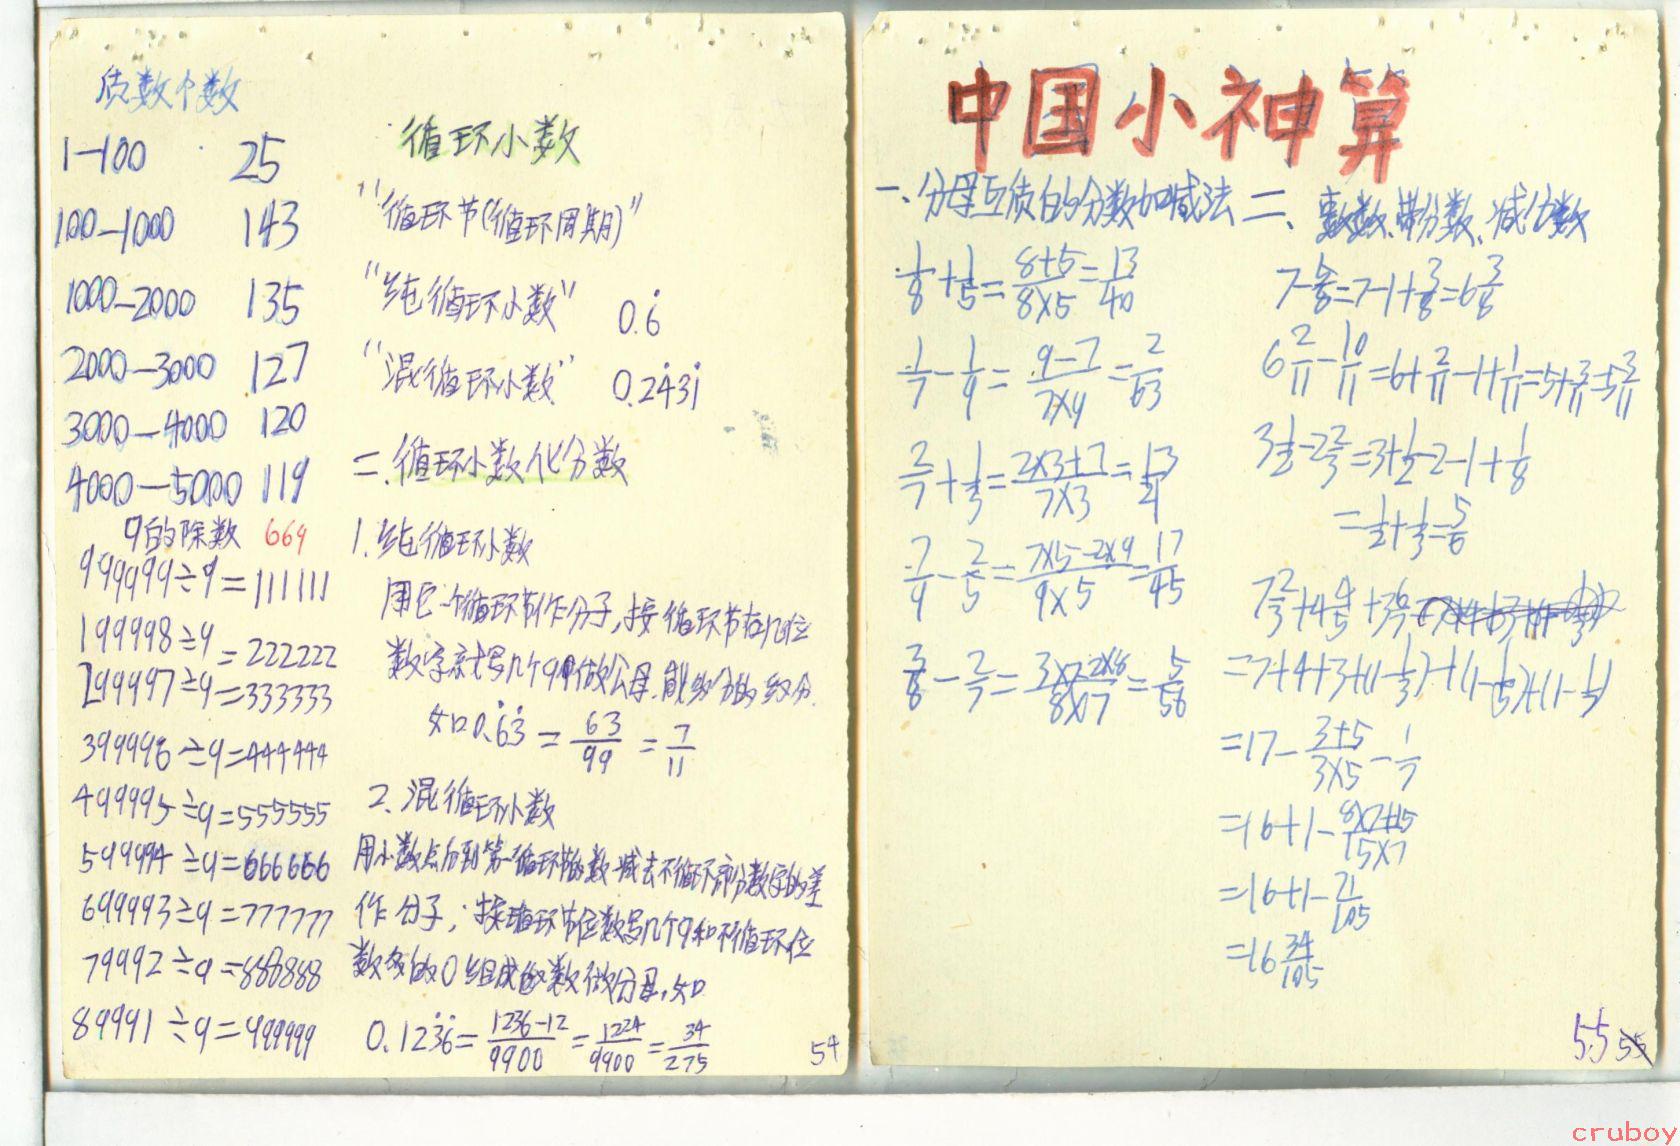 质数个数
1—100 25
100—1000 143
1000—2000 135
2000—3000 127
3000—4000 120
4000—5000 119
9的除数 669
999999÷9=111111
199998÷9=222222
299997÷9=333333
399996÷9=444444
499995÷9=555555
599994÷9=666666
699993÷9=777777
79992÷9=888888
89991÷9=999999
循环小数
"循环节(循环周期)"
"纯循环小数" 0.6̇
"混循环小数" 0.24̇3̇1̇
二.循环小数化分数
1.纯循环小数
用它一个循环节作分子,按循环节有几位
数字就写几个9做分母.能约分的约分.
如0.6̇3̇=63/99=7/11
2.混循环小数
用小数点后到第一循环节的数减去不循环部分数字的差
作分子;按循环节位数写几个9和不循环位
数多的0组成的数做分母,如
0.123̇6̇=1236-12/9900=1224/9900=34/275
54
中国小神算
一.分母互质的分数加减法
1/8+1/5=8+5/8×5=13/40
1/7-1/9=9-7/7×9=2/63
2/7+1/3=2×3+7/7×3=13/21
7/9-2/5=7×5-2×9/9×5=17/45
3/8-2/7=3×7-2×8/8×7=5/56
二、整数、带分数、减分数
7-5/8=7-1+3/8=6 3/8
6 2/11-10/11=6+2/11-1+1/11=5+3/11=5 3/11
3 1/2-2 2/3=3+1/2-2-1+1/8
=1/2+1/3=5/6
7 2/3+4 4/5+3 6/7
=7+4+3+(1-1/3)+(1-1/5)+(1-1/7)
=17-3+5/3×5-1/7
=16+1-8×7+15/15×7
=16+1-71/105
=16 34/105
55
cruboy